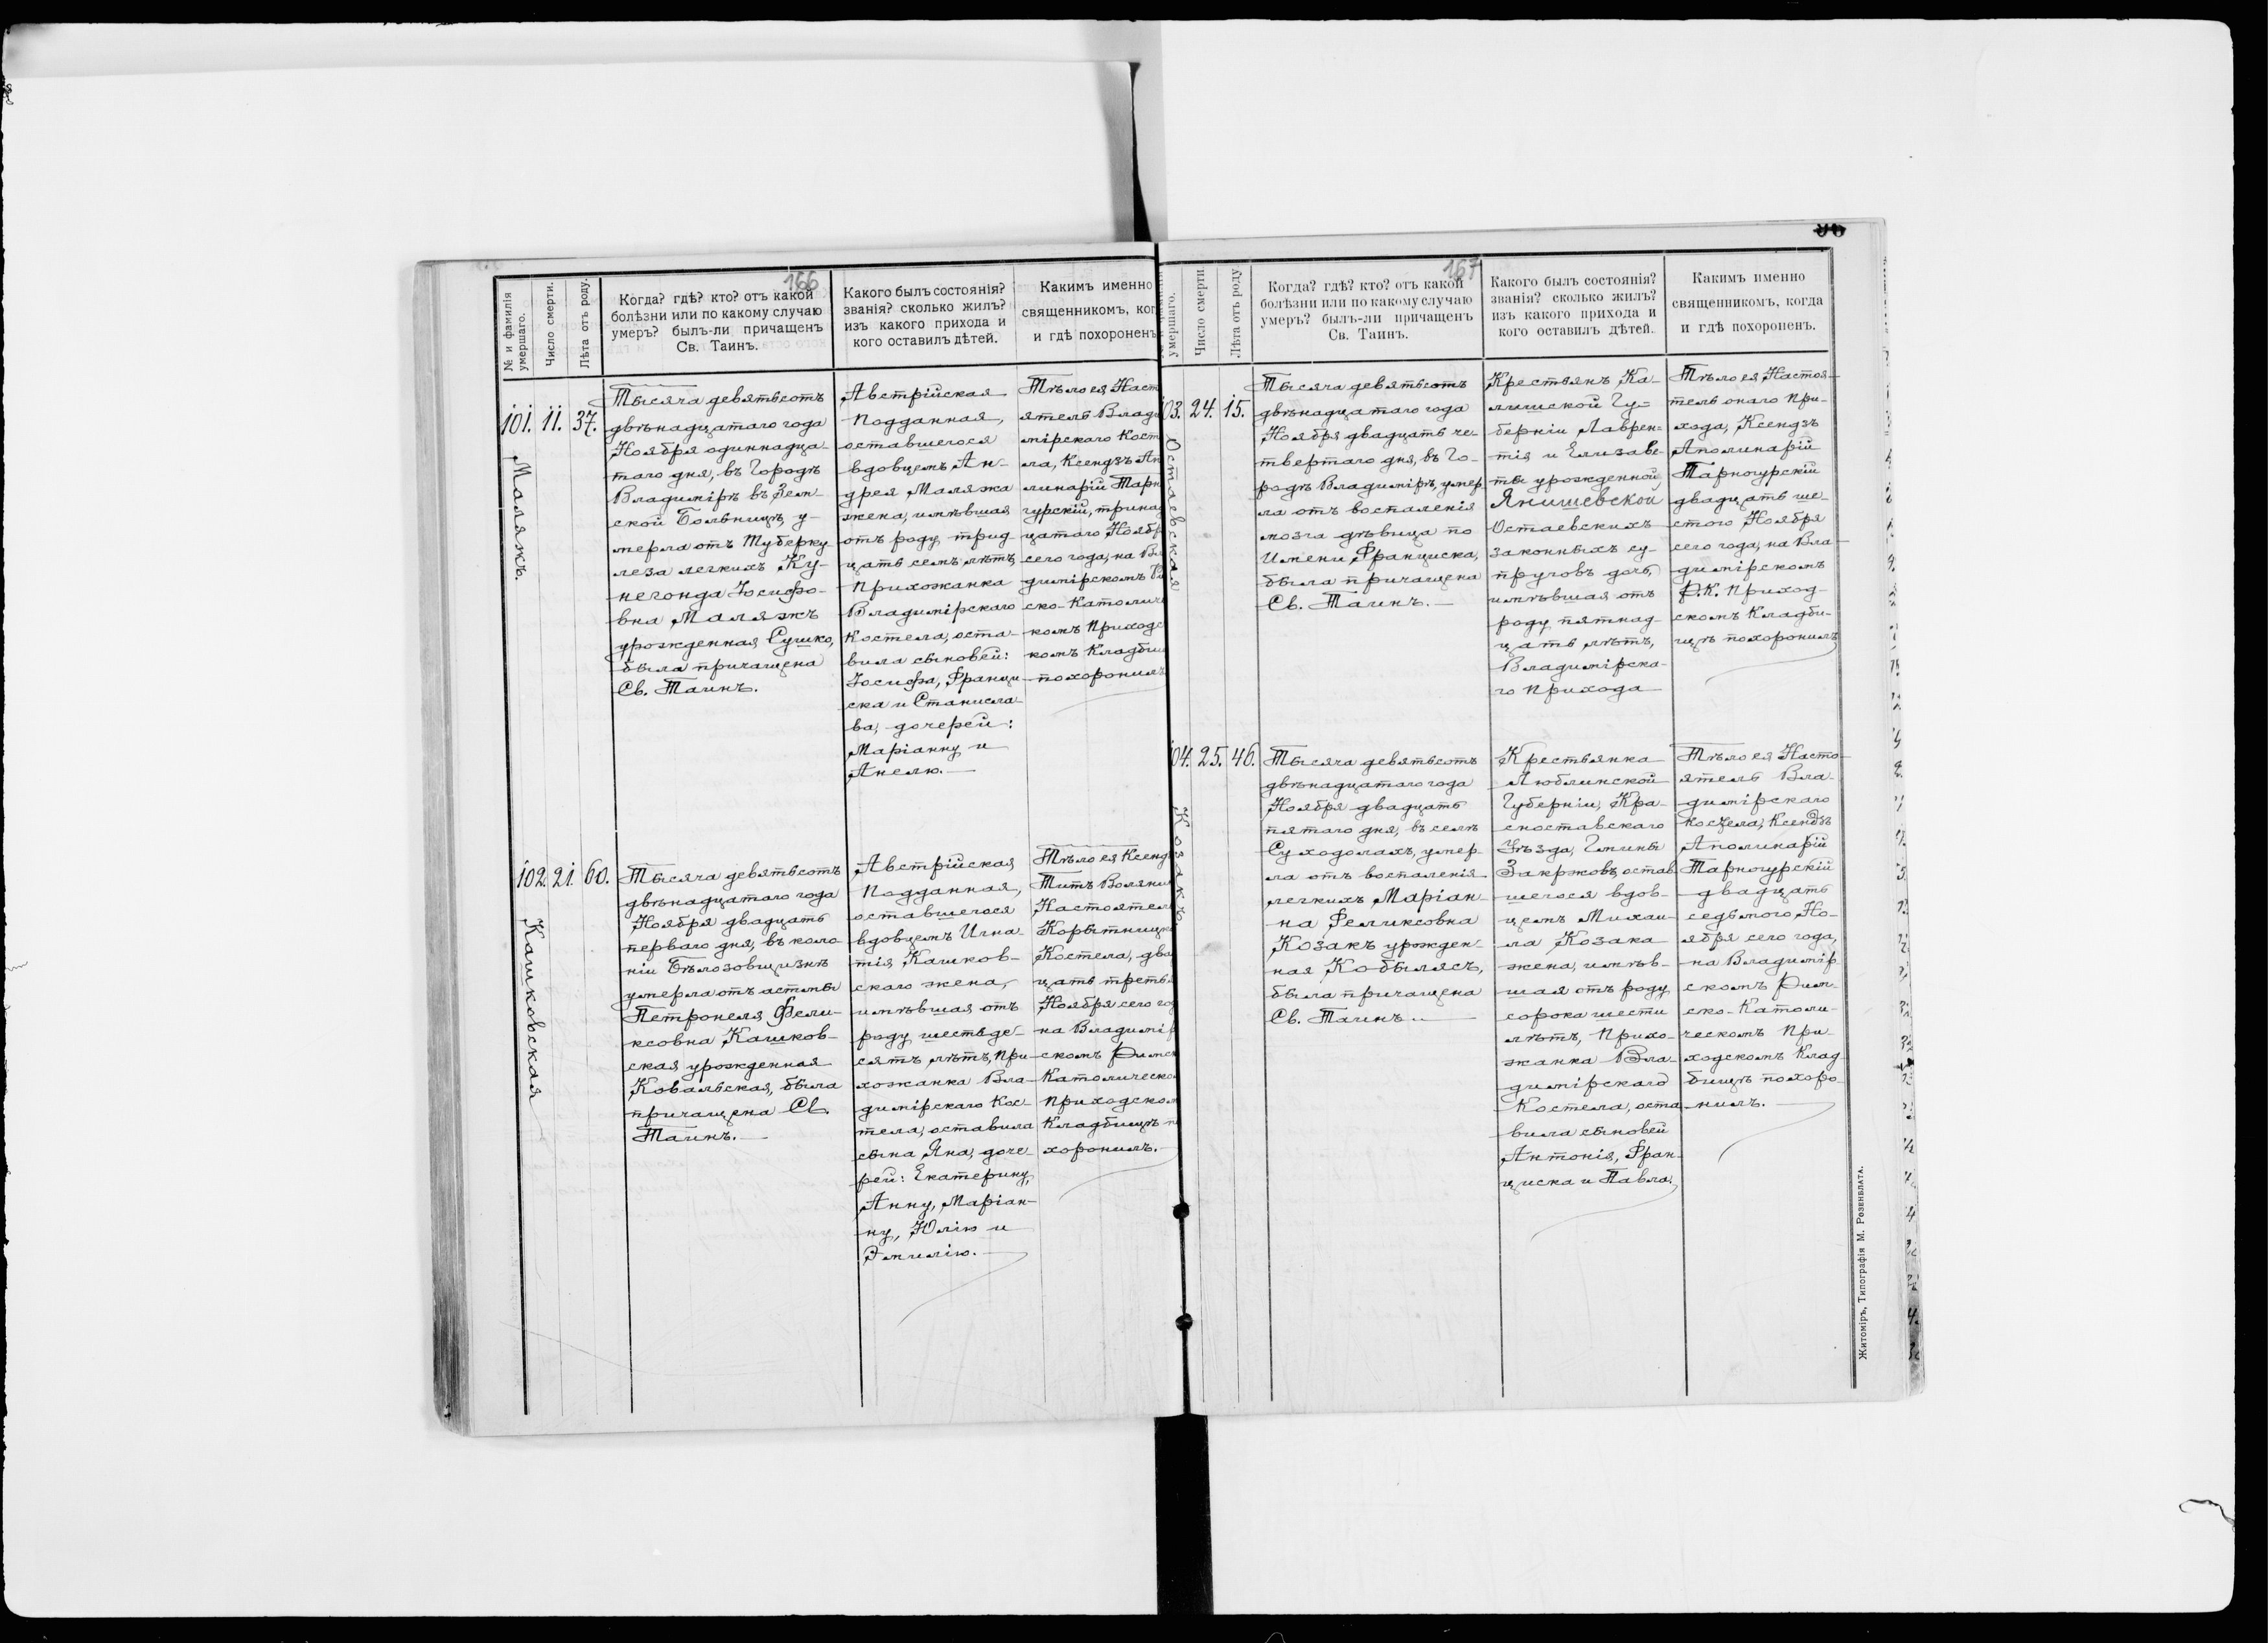 166
№ и фамилія
умершаго.
Число смерти.
Лѣта отъ роду.
Когда? гдѣ? кто? отъ какой
болѣзни или по какому случаю
умеръ? былъ-ли причащенъ
Св. Таинъ.
Какого былъ состоянія?
званія? сколько жилъ?
изъ какого прихода и
кого оставилъ дѣтей.
Какимъ именно
священникомъ, ког
и гдѣ похороненъ
101. 11. 37.
Маляжъ.
Тысяча девятьсотъ
двѣнадцатаго года
Ноября одиннадца-
таго дня, въ Городѣ
Владимірѣ въ Зем-
ской Больницѣ, у-
мерла отъ Туберку
леза легкихъ Ку-
негонда Іосифо-
вна Маляжъ
урожденная Сушко,
была причащена
Св. Таинъ.
Австрійская
Подданная,
оставшегося
вдовцемъ Ан-
дрея Маляжа
жена, имѣвшая
отъ роду трид
цать семь лѣтъ,
Прихожанка
Владимірскаго
Костела, оста-
вила сыновей:
Іосифа, Францы
ска и Станисла
ва, дочерей:
Маріанну и
Анелю.
Тѣло ея Наст
ятель Влади
мірскаго Кост
ла, Ксендзъ Ап
линарій Тарн
гурскій, тринад
цатаго Ноябр
сего года, на Вл
димірскомъ Ри
ско-Католиче
комъ Приходс
комъ Кладбищ
похоронилъ
102. 21. 60.
Кашковская
Тысяча девятьсотъ
двѣнадцатаго года
Ноября двадцать
перваго дня, въ коло
ніи Бѣлозовщизнѣ
умерла отъ астмы
Петронеля Фели-
ксовна Кашков-
ская урожденная
Ковальская, была
причащена Св.
Таинъ.
Австрійская
Подданная,
оставшегося
вдовцемъ Игна-
тія Кашков-
скаго жена,
имѣвшая отъ
роду шестьде-
сятъ лѣтъ, При
хожанка Вла-
димірскаго Кос
тела, оставила
сына Яна, доче-
рей: Екатерину,
Анну, Маріан-
ну, Юлію и
Эмилію.
Тѣло ея Ксенд
Титъ Воляни
Настоятел
Корытницк
Костела, два
цать треть
Ноября сего год
на Владимір
скомъ Римск
Католическо
Приходском
Кладбищѣ п
хоронилъ.
167
умершаго.
Число смерти.
Лѣта отъ роду
Когда? гдѣ? кто? отъ какой
болѣзни или по какому случаю
умеръ? былъ-ли причащенъ
Св. Таинъ.
Какого былъ состоянія?
званія? сколько жилъ?
изъ какого прихода и
кого оставилъ дѣтей.
Какимъ именно
священникомъ, когда
и гдѣ похороненъ.
03. 24. 15.
Остаевская
Тысяча девятьсотъ
двѣнадцатаго года
Ноября двадцать че-
твертаго дня, въ Го-
родѣ Владимірѣ, умер
ла отъ воспаленія
мозга дѣвица по
Имени Франциска,
была причащена
Св. Таинъ.
Крестьянъ Ка-
лишской Гу-
берніи Лаврен-
тія и Елизаве-
ты урожденной
Янишевской
Остаевскихъ
законныхъ су-
пруговъ дочь,
имѣвшая отъ
роду пятнад-
цать лѣтъ,
Владимірска-
го прихода
Тѣло ея Настоя-
тель онаго При-
хода, Ксендзъ
Аполинарій
Тарногурскій
двадцать ше-
стого Ноября
сего года, на Вла-
димірскомъ
Р.К. Приход-
скомъ Кладби-
щѣ похоронилъ
04. 25. 46.
Козакъ.
Тысяча девятьсотъ
двѣнадцатаго года
Ноября двадцать
пятаго дня, въ селѣ
Суходолахъ, умер-
ла отъ воспаленія
легкихъ Маріан-
на Феликсовна
Козакъ урожден-
ная Кобылясъ,
была причащена
Св. Таинъ.
Крестьянка
Люблинской
Губерніи, Кра-
сноставскаго
Уѣзда, Гмины
Закржовъ, остав
шегося вдов-
цемъ Михаи-
ла Козака
жена, имѣв-
шая отъ роду
сорока шести
лѣтъ, Прихо-
жанка Вла-
димірскаго
Костела, оста
вила сыновей
Антонія, Фран-
циска и Павла.
Тѣло ея Насто-
ятель Вла-
димірскаго
косцела, Ксендзъ
Аполинарій
Тарногурскій
двадцать
седьмого Но-
ября сего года,
на Владимір
скомъ Рим-
ско-Католи-
ческомъ При-
ходскомъ Клад
бищѣ похоро-
нилъ.
Житоміръ, Типографія М. Розенблата.